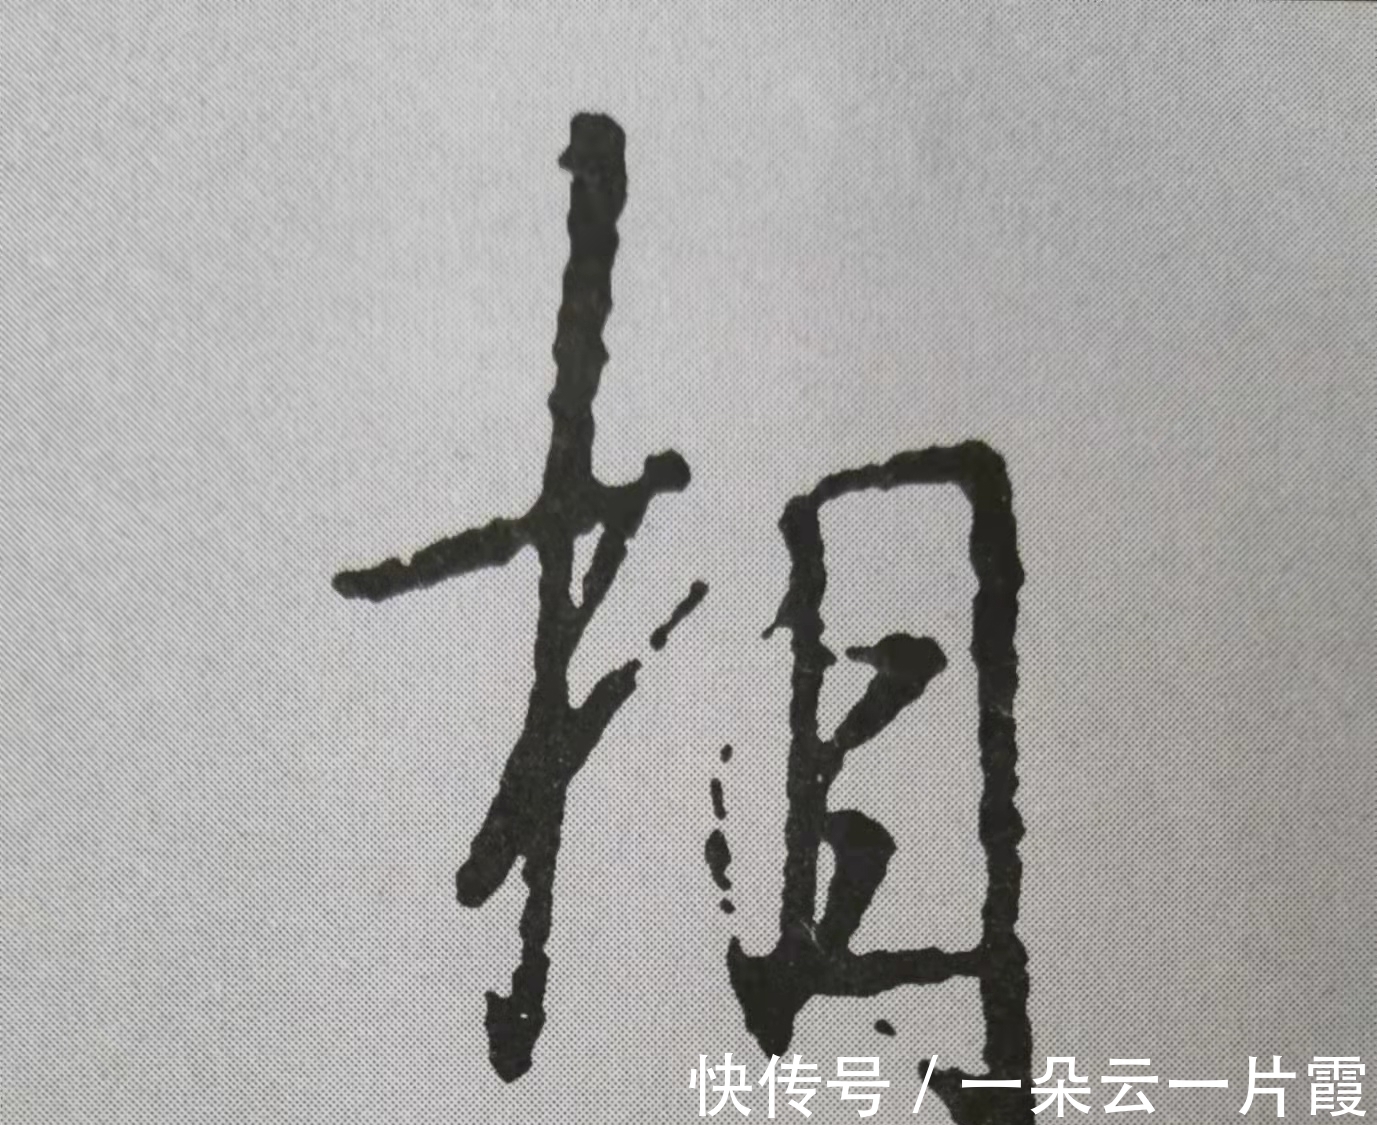 相
快传号 / 一朵云一片霞